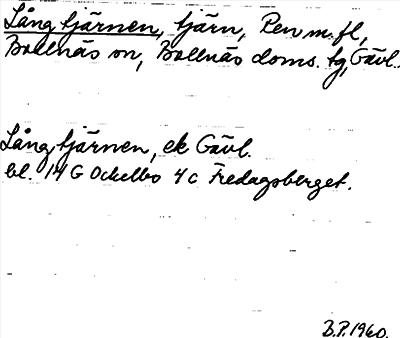 Långtjärnen, tjärn, Ren m. fl,
Bollnäs sn, Bollnäs doms. tg, Gävl.
Långtjärnen, ek Gävl.
bl. 14 G Ockelbo 4 c Fredagsberget.
B.P. 1960.